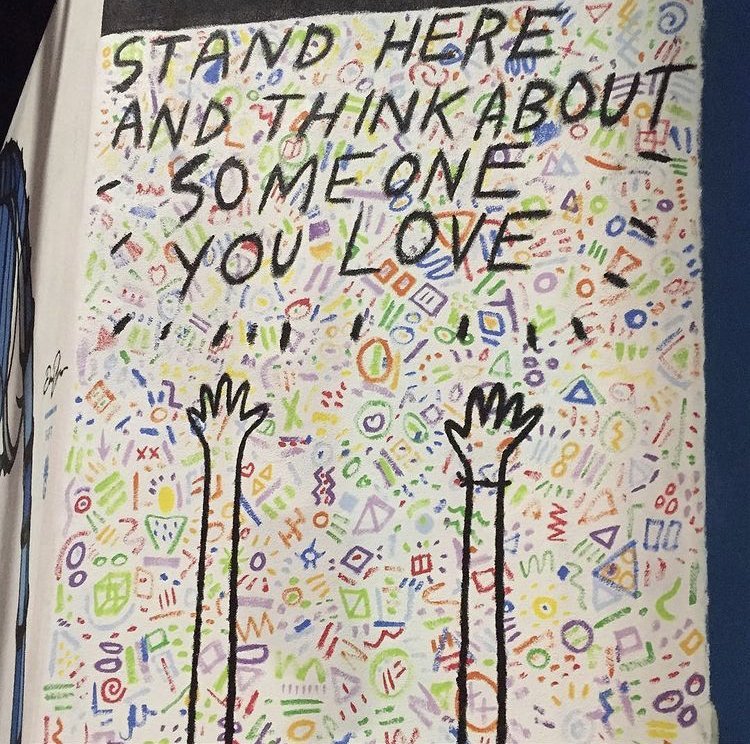 STAND HERE
AND THINK ABOUT
SOMEONE
YOU LOVE